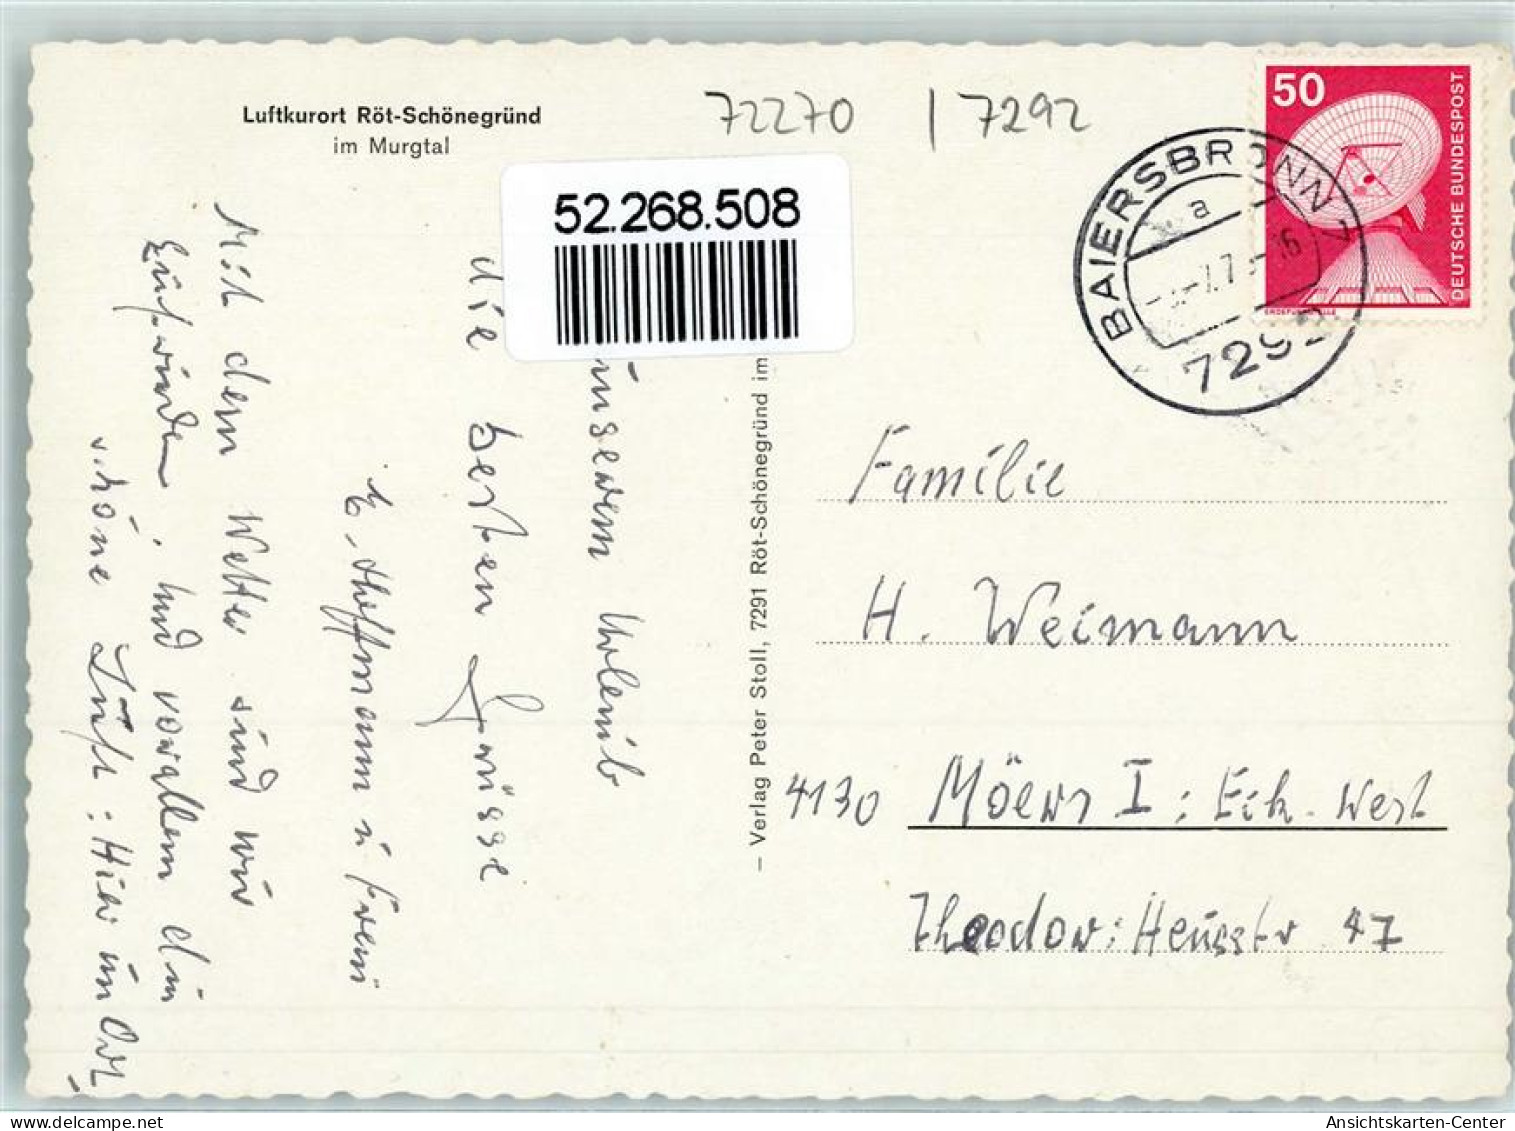 Luftkurort Röt-Schönegründ
im Murgtal
72270 | 7292
52.268.508
50
DEUTSCHE BUNDESPOST
ERDEFUNKSTELLE
BAIERSBRONN 1
a
7292
– Verlag Peter Stoll, 7291 Röt-Schönegründ im
unserem Urlaub
die besten Grüsse
E. Hoffmann u. Freni
Mit dem Wetter sind wir
zufrieden, und vor allem die
schöne Luft: Hier im Ort
Familie
H. Weimann
4130 Möers I: Eik. West
Theodor: Heusstr 47
delcampe.net
Ansichtskarten-Center